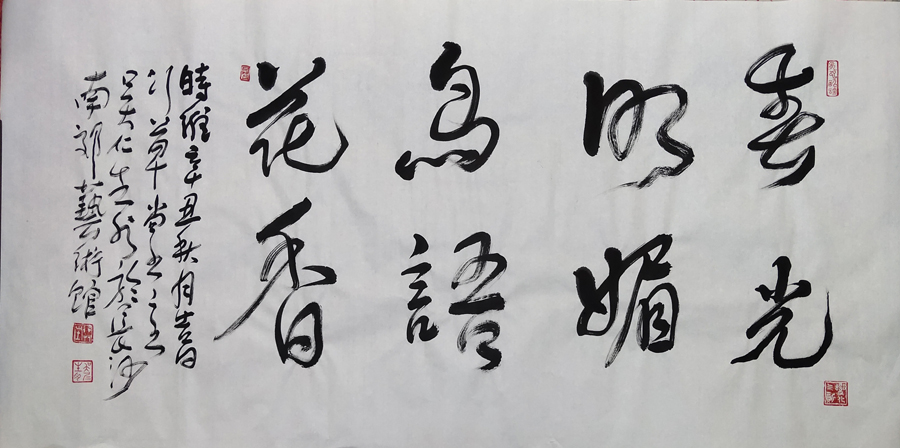 春光
明媚
鳥語
花香
時維辛丑秋月吉日
行草
天仁生於長沙
南郊藝術館